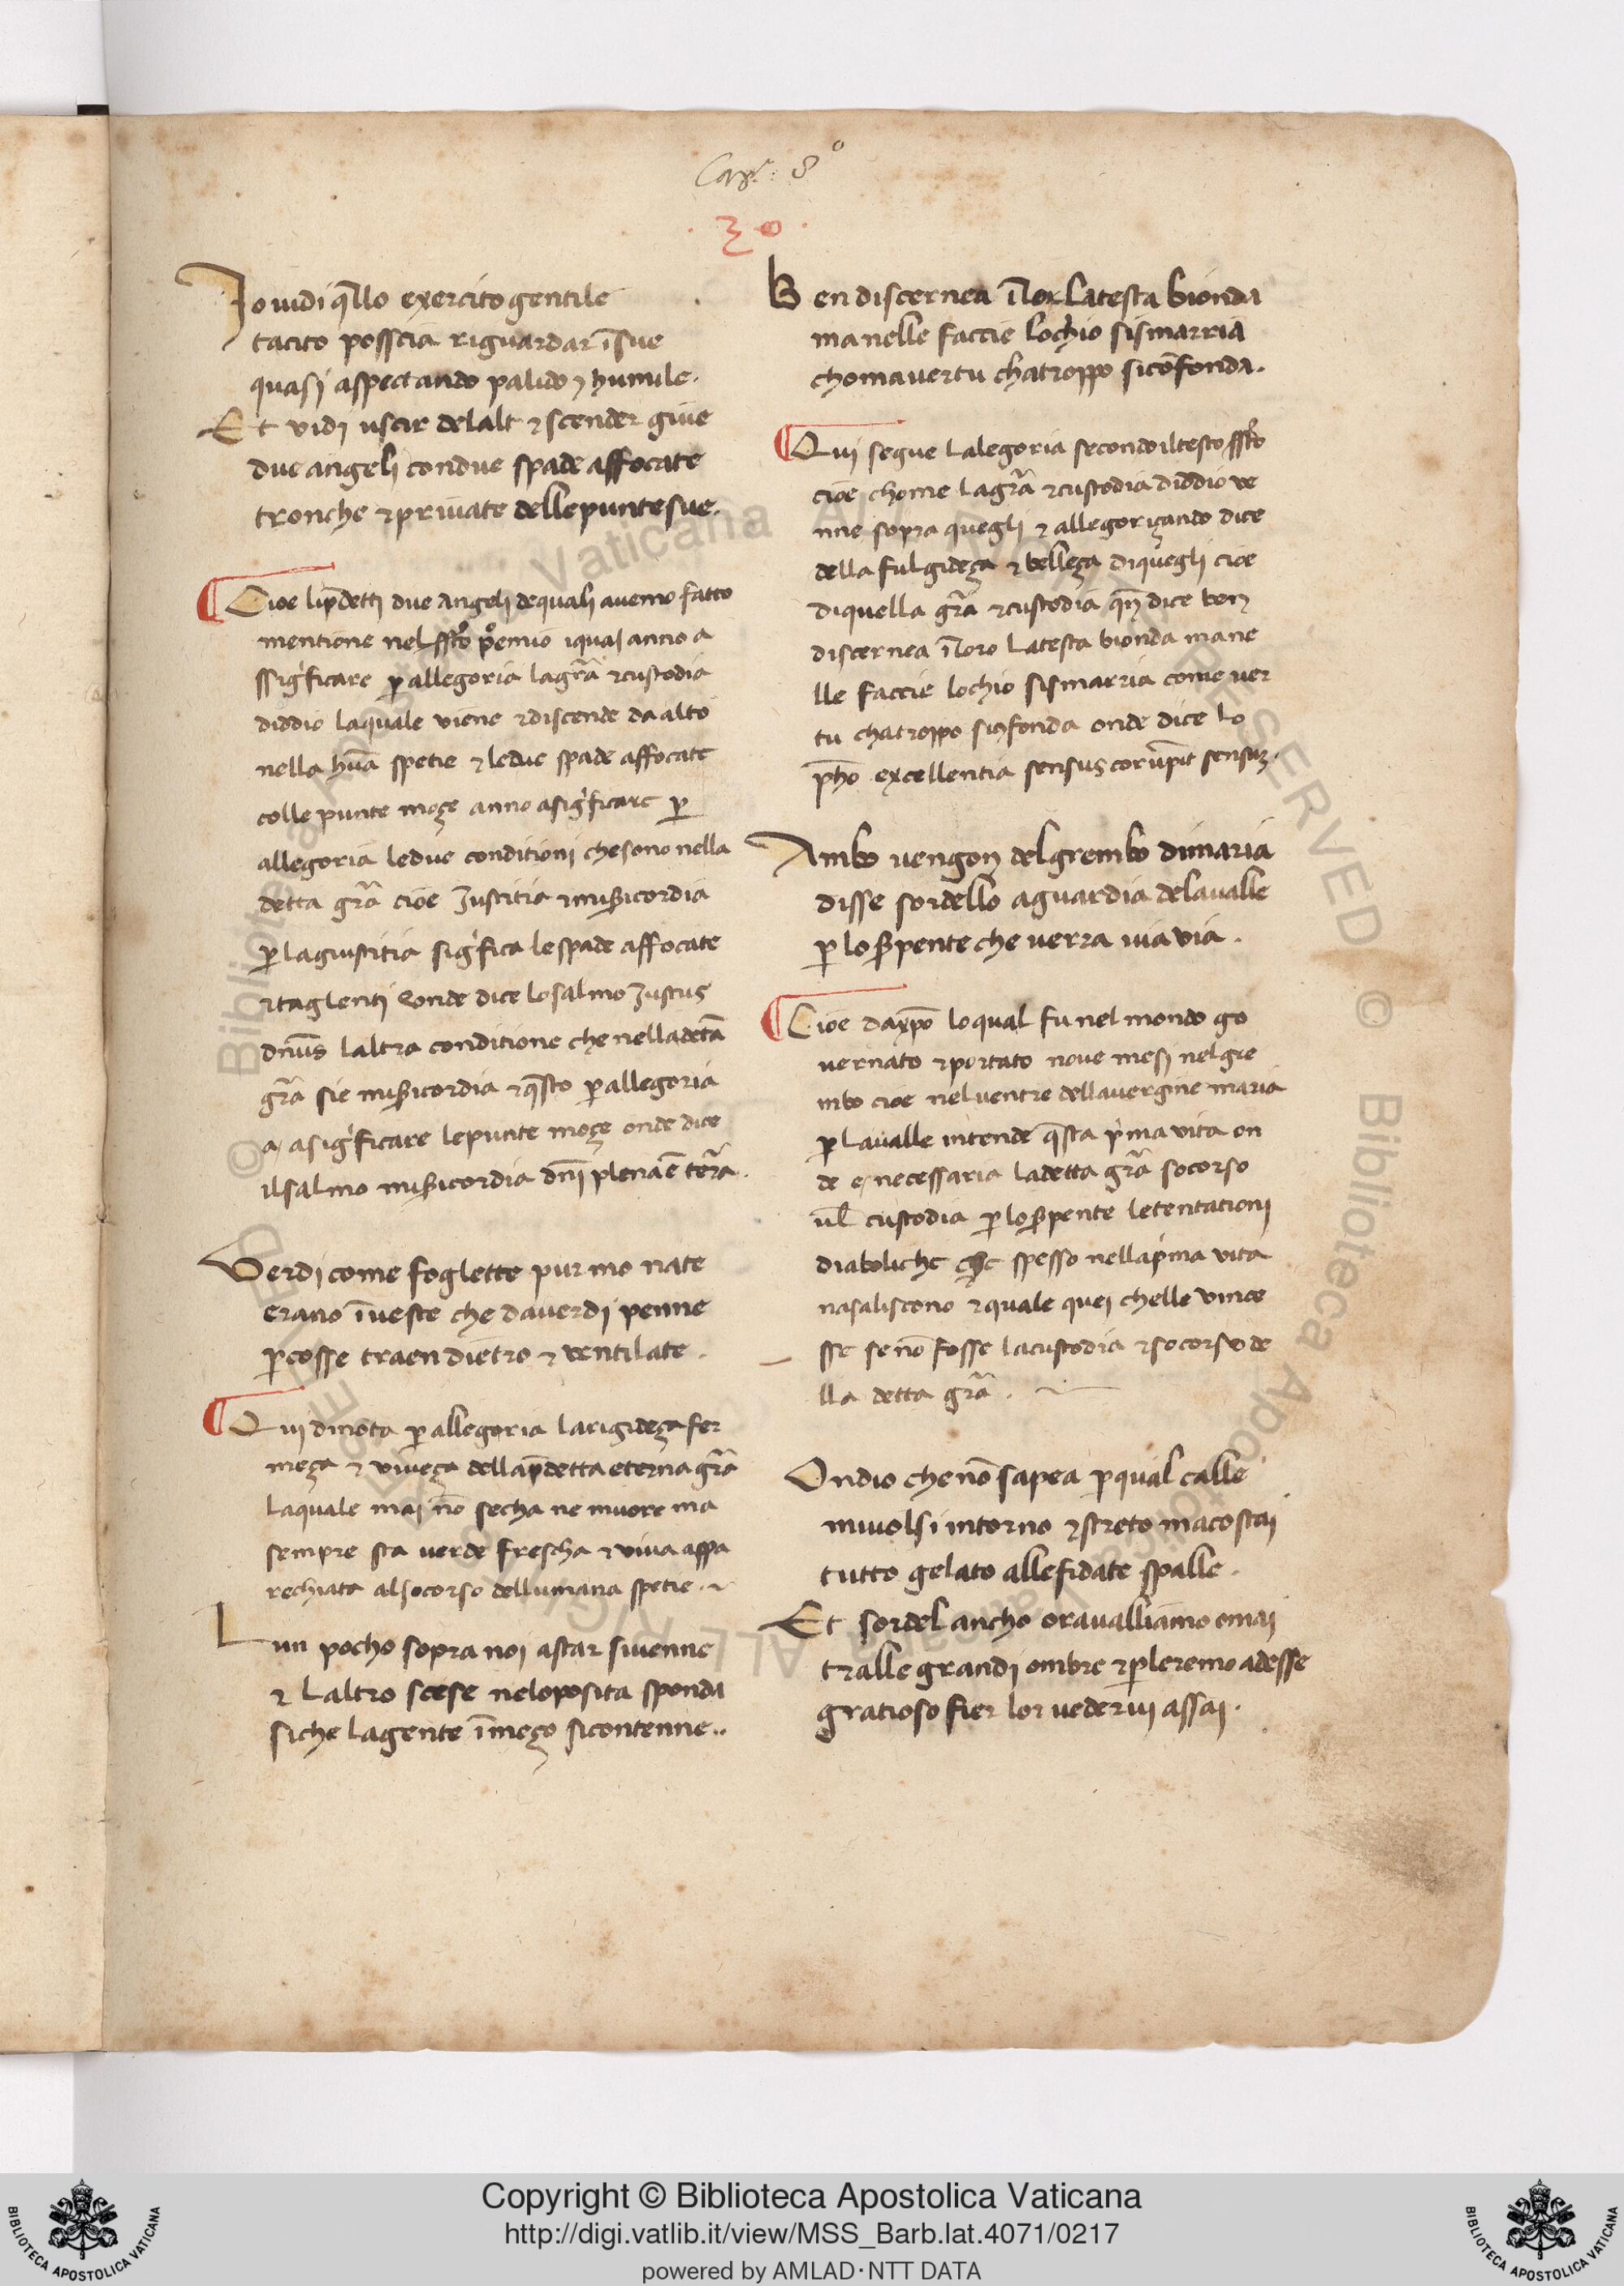 Cap.º 8º
. 30 .
Io uidi q̄llo exercito gentile
tacito posscia riguardar ī sue
quasi aspectando palido ⁊ humile.
Et vidi uscir delalt ⁊ scender giue
due angeli con due spade affocate
tronche ⁊ priuate delle punte sue.
Cioe li p̄detti due angeli de quali auemo fatto
mentione nel sscō p̄emio i quaj anno a
ssig̓ficare ꝑ allegoria la gr̄a ⁊ custodia
diddio laquale viene ⁊ discende da alto
nella hūa spetie ⁊ le due spade affocate
colle punte moçe anno a sig̓ficare ꝑ
allegoria le due conditioni che sono nella
detta gr̄a cioe Iustitia ⁊ miẜicordia
ꝑ la giustitia sig̓fica le spade affocate
⁊ taglenti Onde dice lo salmo Iustus
dnūs laltra conditione che nella detā
gr̄a sie miẜicordia ⁊ q̄sto ꝑ allegoria
a asig̓ficare le punte moçe onde dice
il salmo miẜicordia dnī plena ē terā.
Verdi come foglette pur mo nate
erano ī ueste che da uerdi penne
ꝑcosse traen dietro ⁊ ventilate.
Qui dinota ꝑ allegoria la rigideça fer
meça ⁊ viueça della p̄detta eterna gr̄a
laquale mai nō secha ne muore ma
sempre sta uerde frescha ⁊ viua appa
rechiata al socorso dell umana spetie.~
Lun pocho sopra noi a star si uenne
⁊ laltro scese nel oposita sponda
siche la gente ī meço si contenne..
Ben discernea ī lor la testa bionda
ma nelle faccie lochio si smarria
choma uertu cha troppo si cōfonda.
Qui segue lalegoria secondo il testo sscō
cioe chome la gr̄a ⁊ custodia diddio ve
nne sopra quegli ⁊ allegoriçando dice
della fulgideça ⁊ belleça di quegli cioe
di quella gr̄a ⁊ custodia qn̄ dice ben
discernea ī loro la testa bionda ma ne
lle faccie lochio si smarria come uer
tu cha troppo si ꝯfonda onde dice lo
ph̄o excellentia sensus corūpit sensuꝫ.
Ambo uengon del grembo di maria
disse sordello a guardia dela ualle
ꝑ lo ẜpente che uerra via via.
Cioe da xp̄o lo qual fu nel mondo go
uernato ⁊ portato noue mesi nel gre
mbo cioe nel uentre della uergine maria
ꝑ la ualle intende q̄sta p̓ma vita on
de e necessaria la detta gr̄a socorso
ul̄ custodia ꝑ lo ẜpente le tentationi
diaboliche che spesso nella p̓ma vita
nasaliscono ⁊ quale quei chelle vince
sse se nō fosse la custodia ⁊ socorso de
lla detta gr̄a.
Ondio che nō sapea ꝑ qual calle
mi uolsi intorno ⁊ streto macostai
tutto gelato alle fidate spalle.
Et sordel ancho ora ualliamo omai
tralle grandi ombre ⁊ ꝑleremo ad esse
gratioso fier lor uederui assai.
Copyright © Biblioteca Apostolica Vaticana
http://digi.vatlib.it/view/MSS_Barb.lat.4071/0217
powered by AMLAD·NTT DATA
BIBLIOTECA APOSTOLICA VATICANA
BIBLIOTECA APOSTOLICA VATICANA